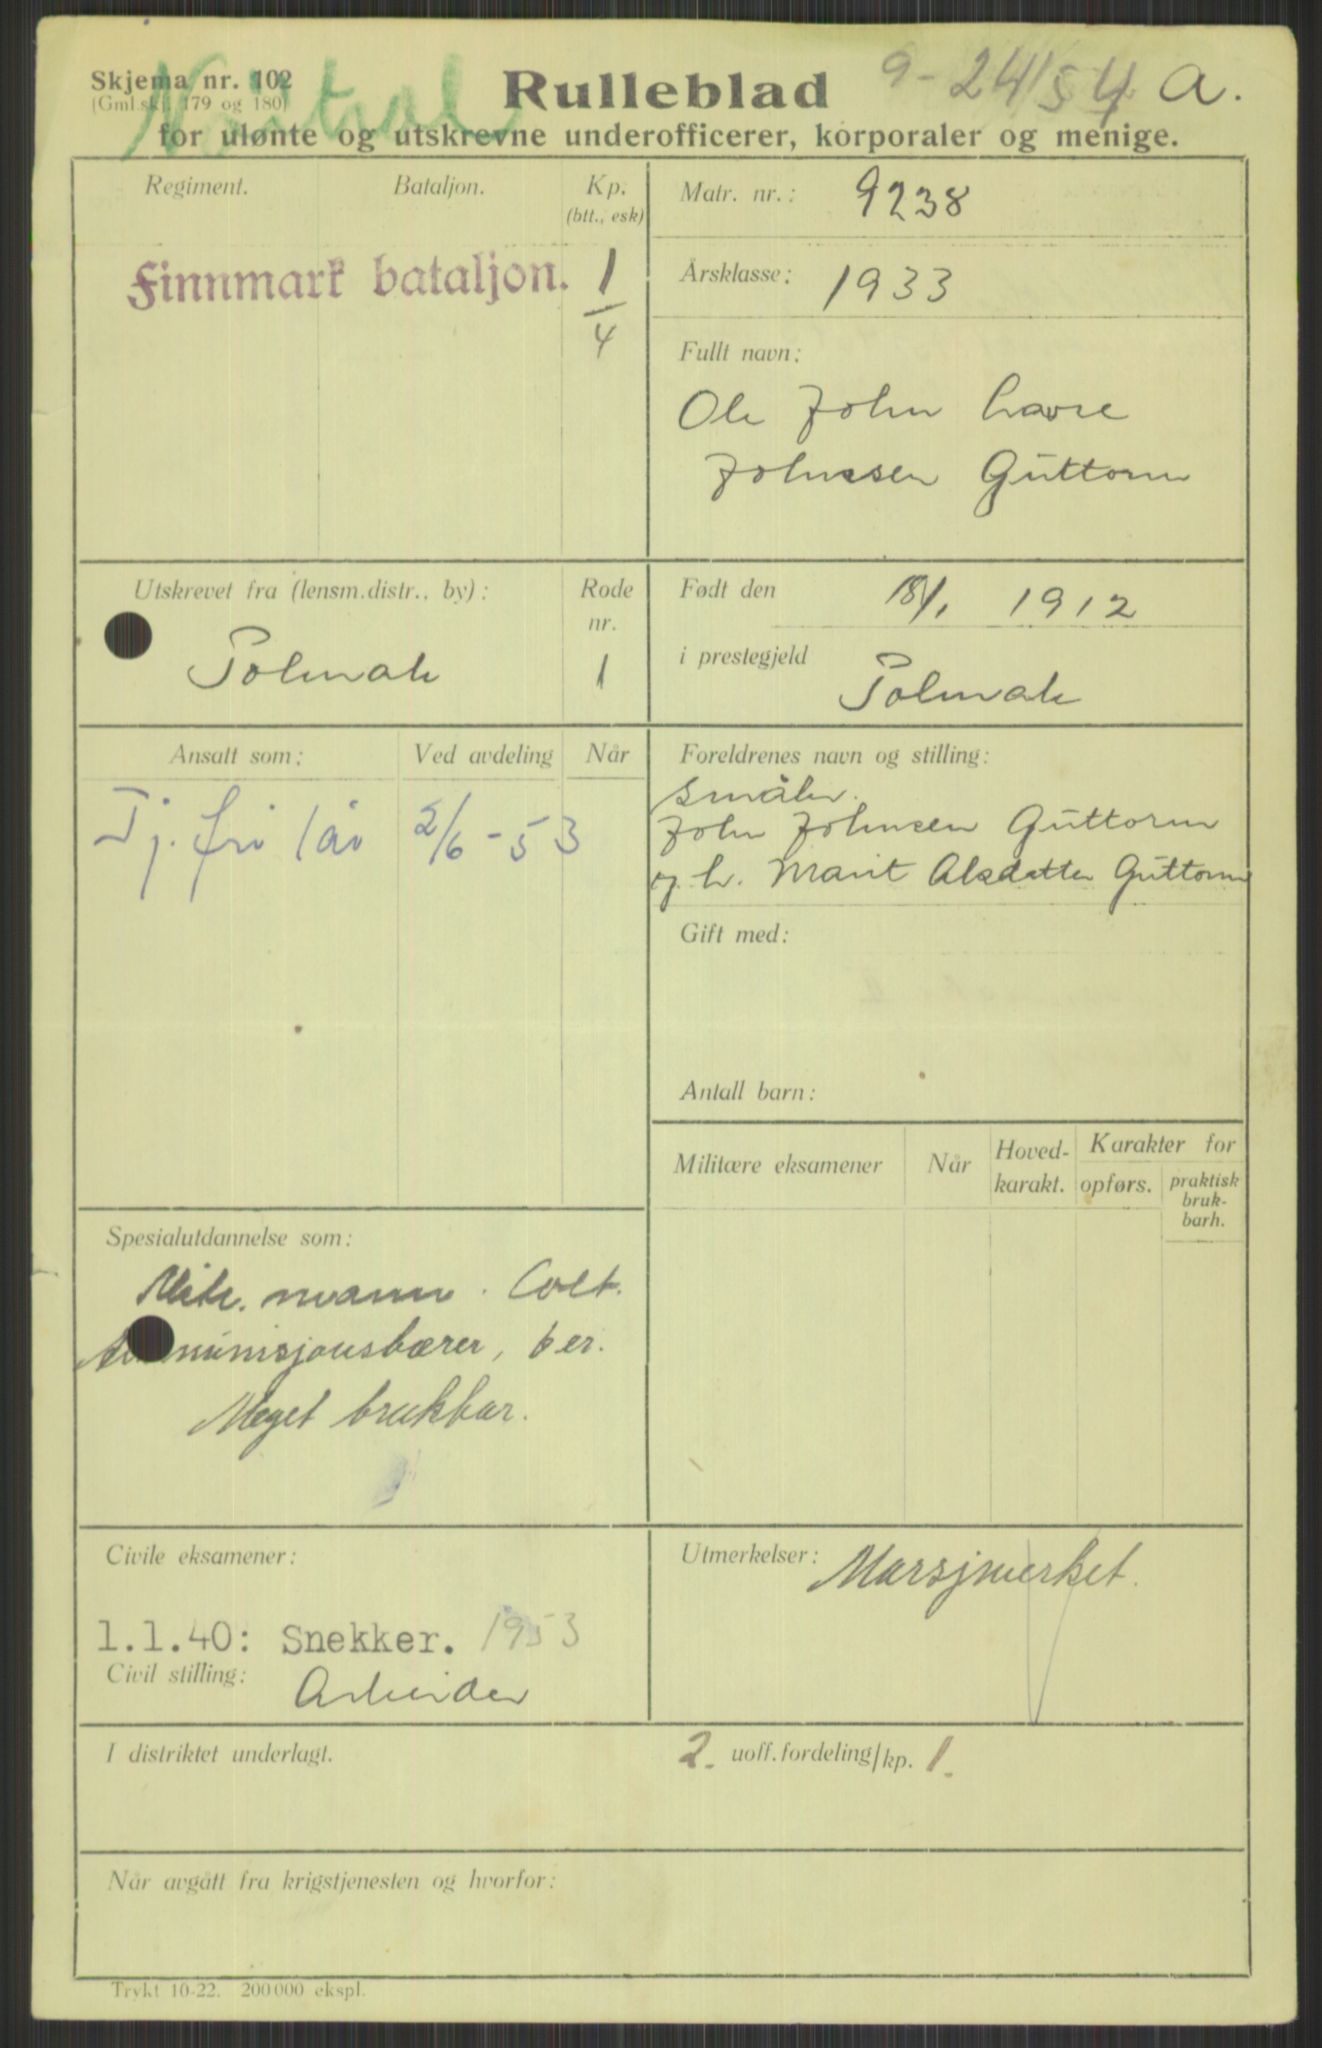 Skjema nr. 102
(Gml. skj. 179 og 180)
Nøitral
Rulleblad
9-24154 a.
for ulønte og utskrevne underofficerer, korporaler og menige.
Regiment.
Bataljon.
Kp.
(btt., esk)
Finnmark bataljon.
1/4
Matr. nr.: 9238
Årsklasse: 1933
Fullt navn:
Ole John Lavre
Johnsen Guttorm
Utskrevet fra (lensm.distr., by):
Polmak
Rode
nr.
1
Født den 18/1 1912
i prestegjeld
Polmak
Ansatt som:
Ved avdeling
Når
Tj. fri 1 år 2/6-53
Foreldrenes navn og stilling:
småbr.
John Johnsen Guttorm
og h. Marit Alsdatter Guttorm
Gift med:
Antall barn:
Militære eksamener
Når
Hoved-
karakt.
Karakter for
opførs.
praktisk
bruk-
barh.
Spesialutdannelse som:
Mitr. mann. Colt.
Ammunisjonsbærer, 6 er.
Meget brukbar.
Civile eksamener:
1.1.40: Snekker. 1953
Civil stilling:
Arbeider
Utmerkelser: Marsjmerket.
I distriktet underlagt.
2. uoff. fordeling/kp. 1.
Når avgått fra krigstjenesten og hvorfor:
Trykt 10-22. 200 000 ekspl.